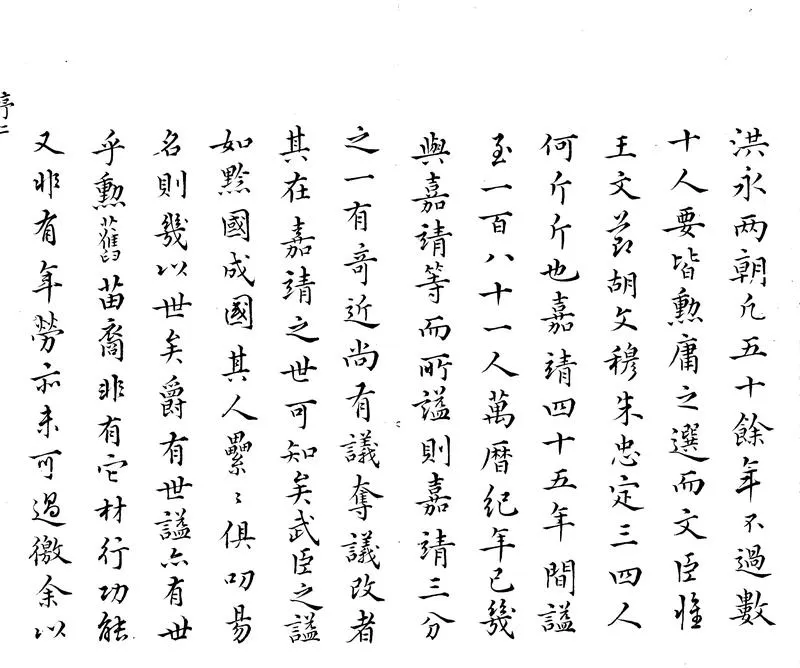 洪永两朝凡五十餘年不過數
十人要皆勲庸之選而文臣惟
王文莭胡文穆朱忠定三四人
何斤斤也嘉靖四十五年間諡
至一百八十一人萬曆紀年已幾
與嘉靖等而所諡則嘉靖三分
之一有奇近尚有議奪議改者
其在嘉靖之世可知矣武臣之諡
如黔國成國其人纍〻俱叨易
名則幾以世矣爵有世諡亦有世
乎勲舊苗裔非有它材行功能
又非有年勞亦未可過徼余以
序二